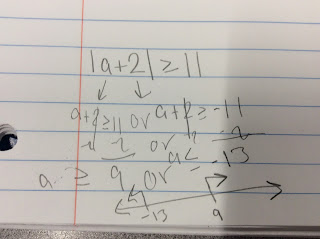 |a+2| ≥ 11
↓ ↓
a+2 ≥ 11 or a+2 ≥ -11
-2 -2 or -2
a ≥ 9 or a ≤ -13
-13 9